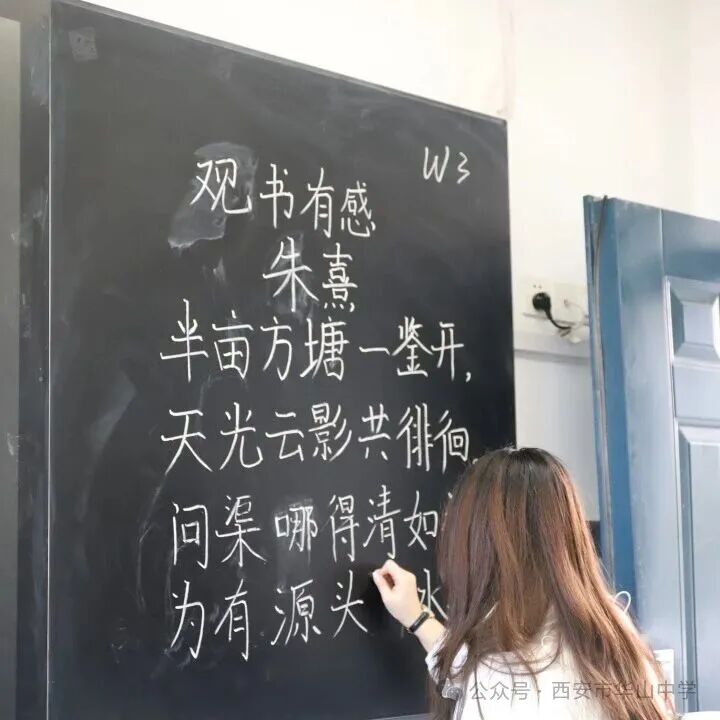 W3
观书有感
朱熹
半亩方塘一鉴开,
天光云影共徘徊,
问渠哪得清如
为有源头 水
公众号·西安市华山中学